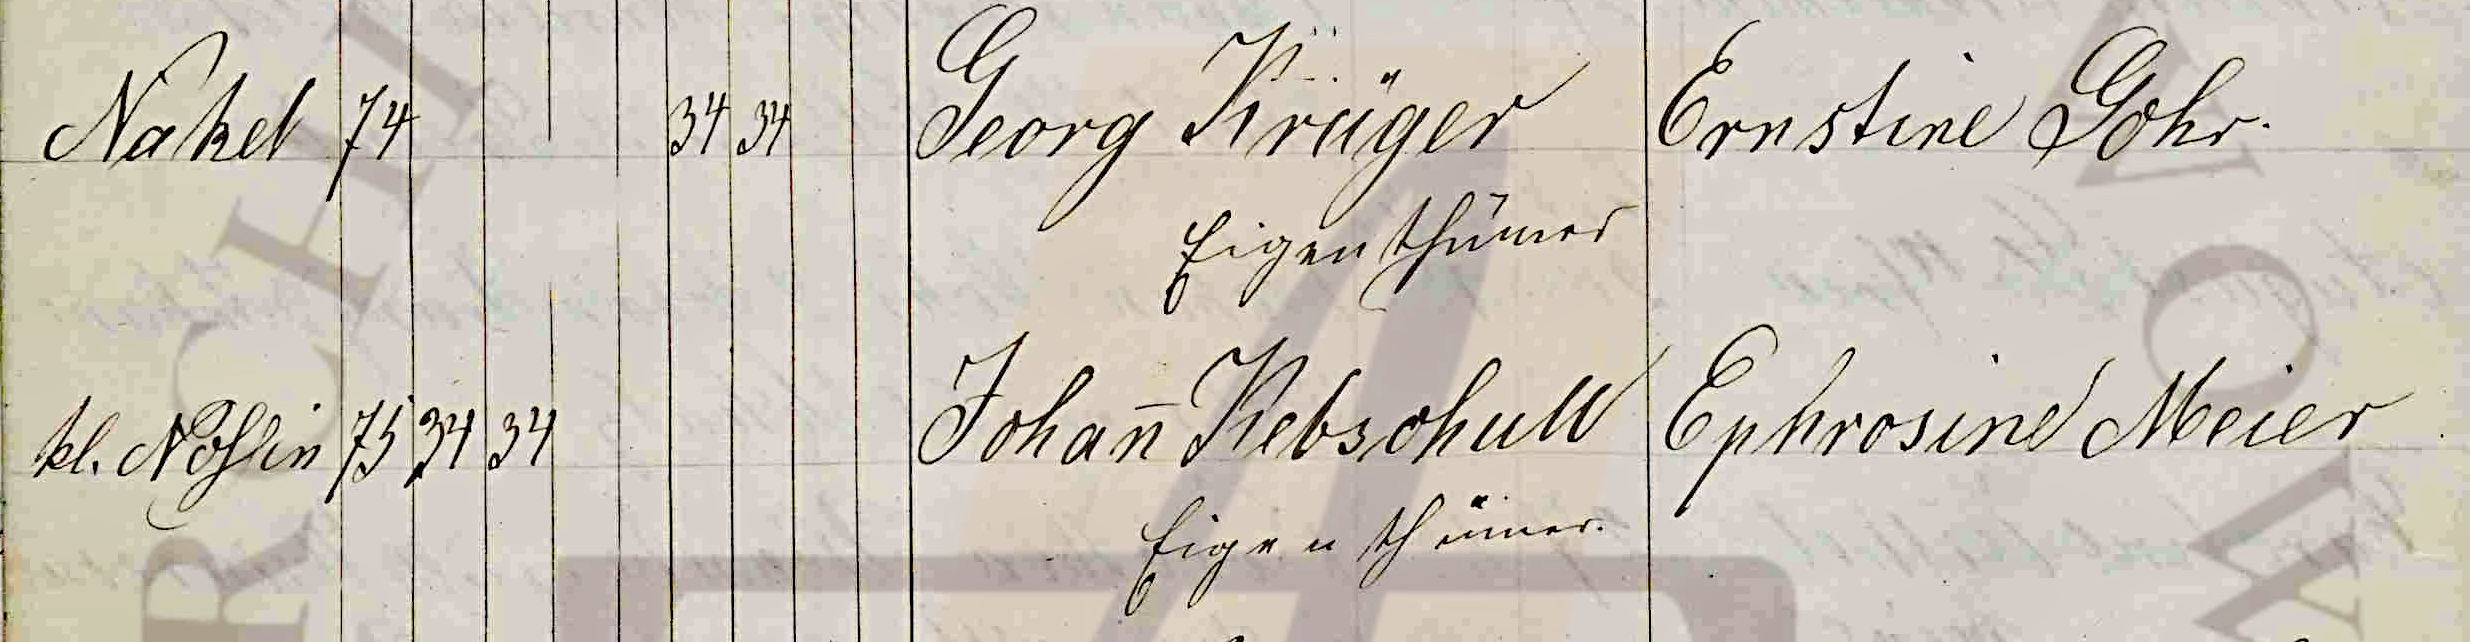 Nakel 74 34 34 Georg Krüger Ernstine Gohr.
Eigenthümer
kl. 75 34 34 Johan̄ Kebschull Ephrosine Meier
Eigenthümer.